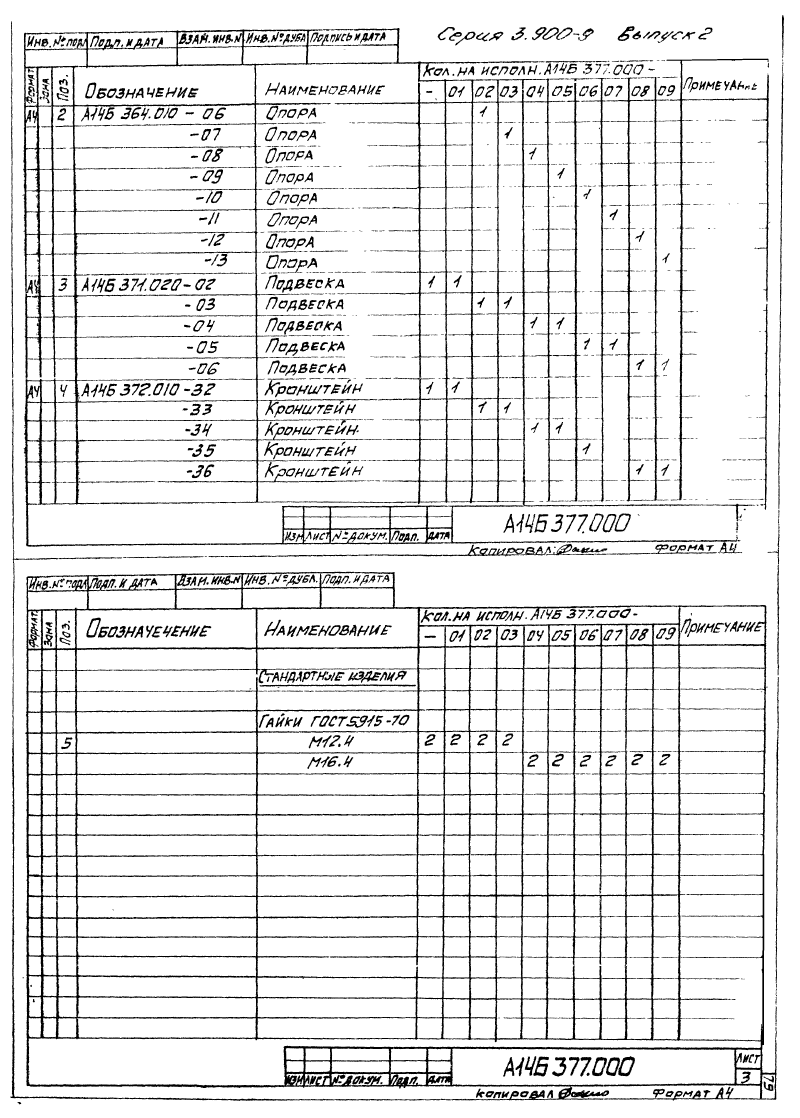 Серия 3.900-9 Выпуск 2
Инв. № подл Подп. и дата Взам. инв. № Инв. № дубл Подпись и дата
Формат Зона Поз. Обозначение Наименование Кол. на исполн. А14Б 377.000 - Примечание
- 01 02 03 04 05 06 07 08 09
А4 2 А14Б 364.010 - 06 Опора 1
-07 Опора 1
-08 Опора 1
-09 Опора 1
-10 Опора 1
-11 Опора 1
-12 Опора 1
-13 Опора 1
А4 3 А14Б 371.020-02 Подвеска 1 1
-03 Подвеска 1 1
-04 Подвеска 1 1
-05 Подвеска 1 1
-06 Подвеска 1 1
А4 4 А14Б 372.010-32 Кронштейн 1 1
-33 Кронштейн 1 1
-34 Кронштейн 1 1
-35 Кронштейн 1
-36 Кронштейн 1 1
А14Б 377.000
Изм Лист № докум. Подп. Дата
Копировал: Формат А4
Инв. № подл Подп. и дата Взам. инв. № Инв. № дубл. Подп. и дата
Формат Зона Поз. Обозначечение Наименование Кол. на исполн. А14Б 377.000- Примечание
- 01 02 03 04 05 06 07 08 09
Стандартные изделия
Гайки ГОСТ 5915-70
5 М12.4 2 2 2 2
М16.4 2 2 2 2 2 2
А14Б 377.000 Лист
Изм Лист № докум. Подп. Дата 3
Копировал Формат А4
79